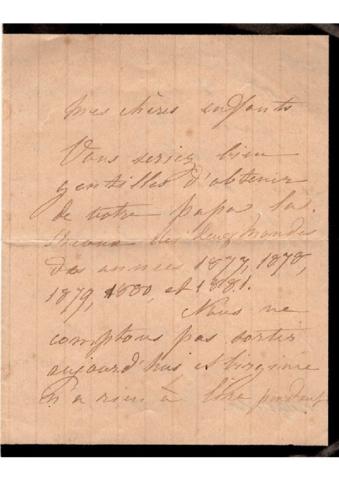 mes chères enfants
Vous seriez bien
gentilles d'obtenir
de votre papa les
Revues des deux mondes
des années 1877, 1878,
1879, 1880, et 1881.
Nous ne
comptons pas sortir
aujourd'hui et Virginie
n'a rien à lire pendant